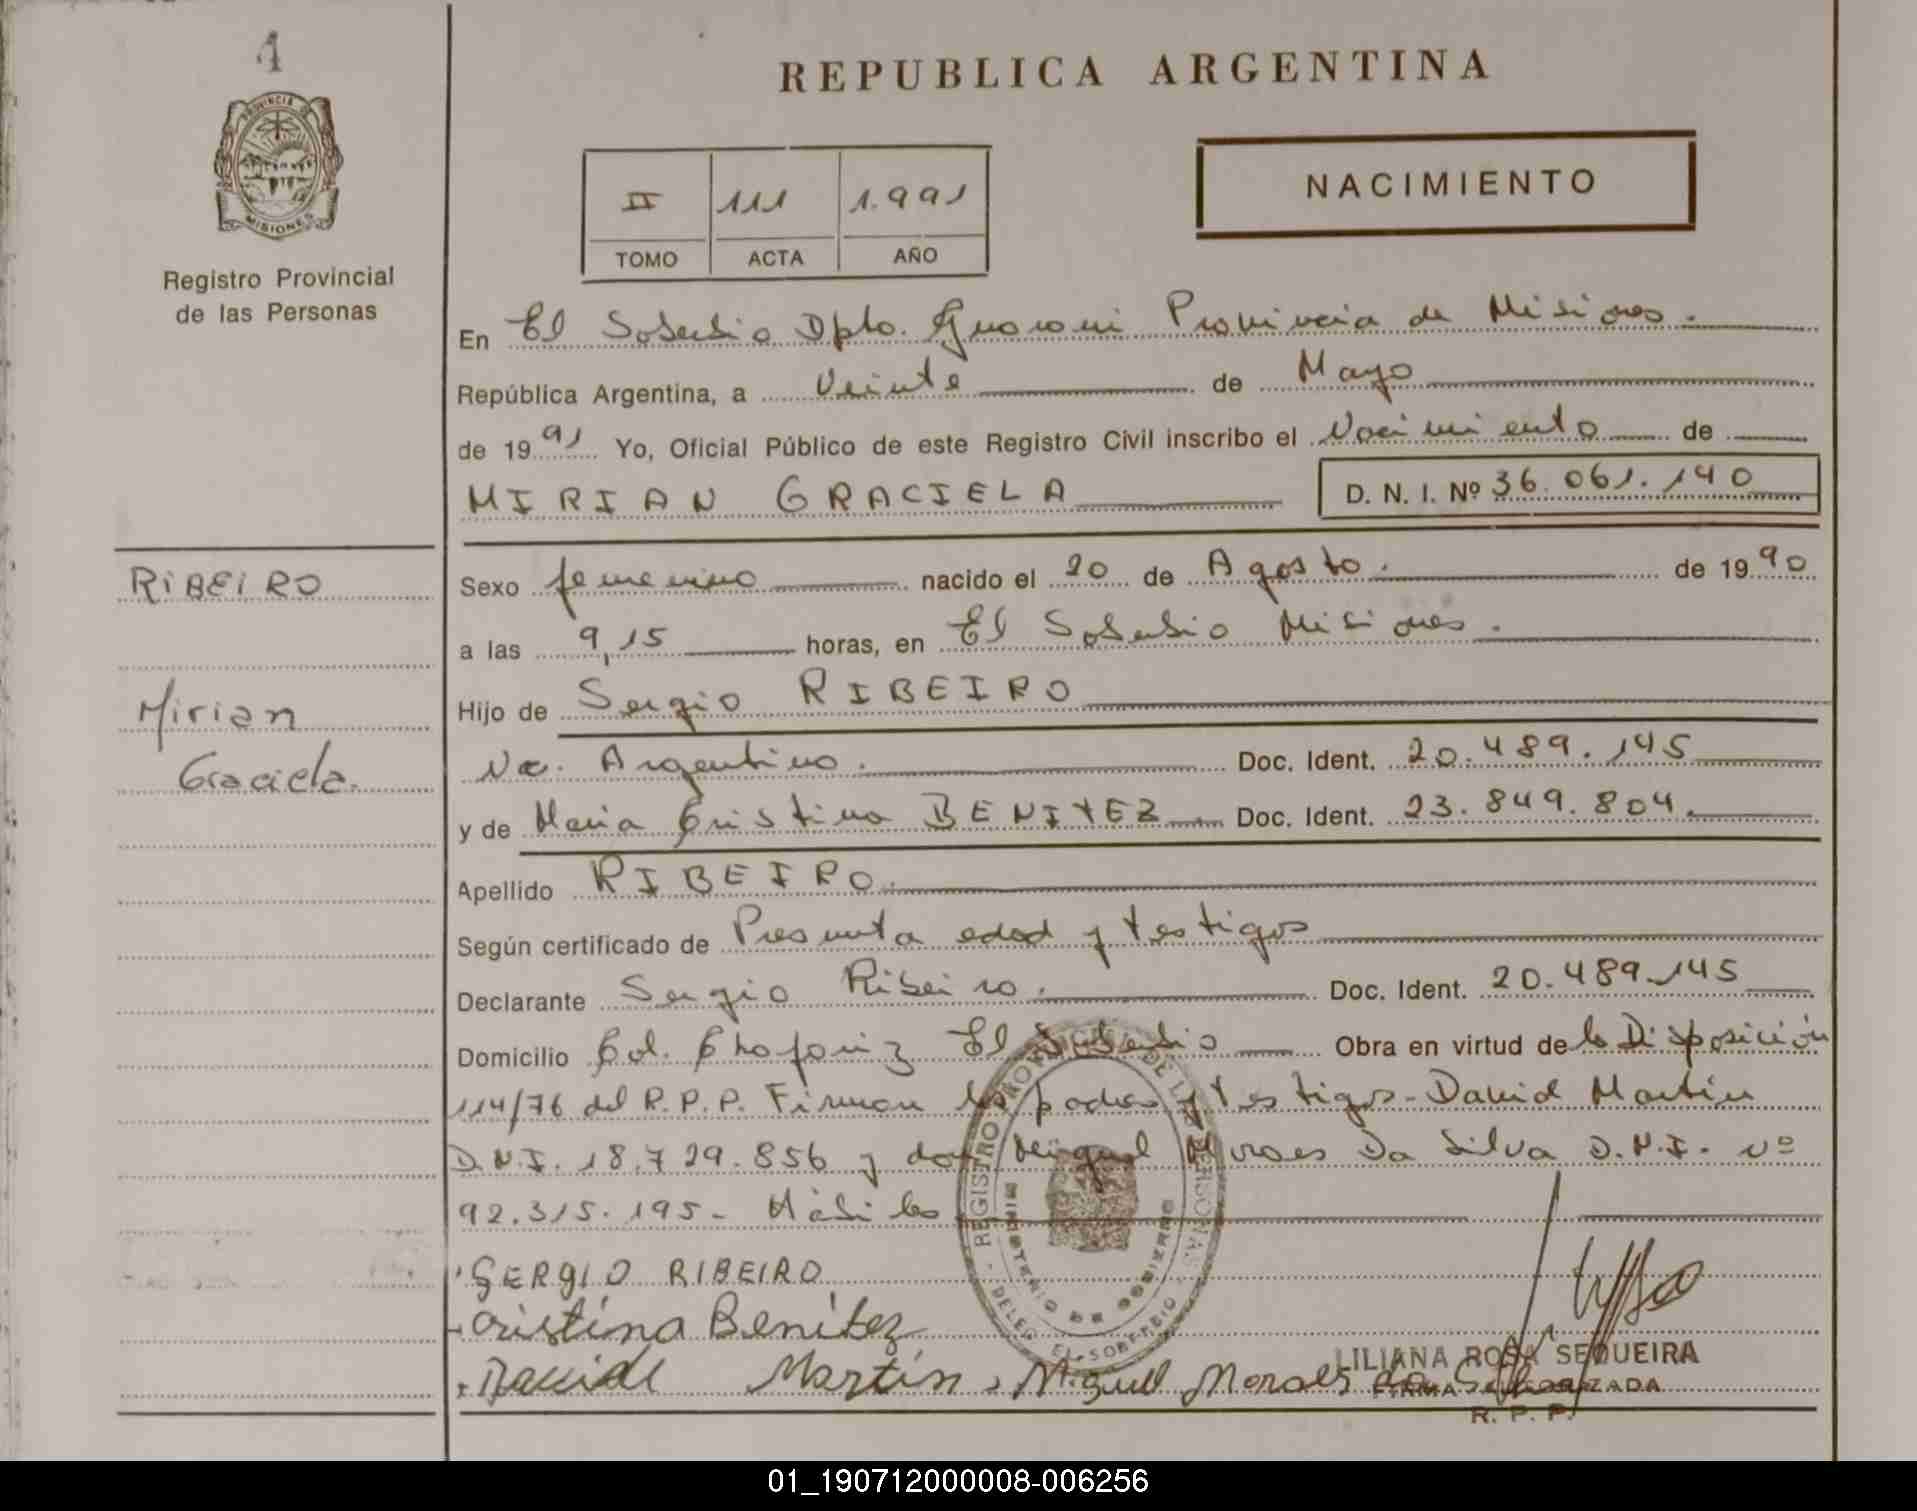 1
PROVINCIA DE
MISIONES
Registro Provincial
de las Personas
REPUBLICA ARGENTINA
II 111 1.991
TOMO ACTA AÑO
NACIMIENTO
En El Soberbio Dpto. Guarani Provincia de Misiones.
República Argentina, a Veinte de Mayo
de 1991 Yo, Oficial Público de este Registro Civil inscribo el Nacimiento de
MIRIAN GRACIELA D. N. I. Nº 36.061.140
RIBEIRO
Mirian
Graciela.
Sexo femenino nacido el 20 de Agosto. de 1990
a las 9,15 horas, en El Soberbio Misiones.
Hijo de Sergio RIBEIRO
Nac. Argentino. Doc. Ident. 20.489.145
y de Maria Cristina BENITEZ Doc. Ident. 23.849.804.
Apellido RIBEIRO.
Según certificado de Presunta edad y testigos
Declarante Sergio Ribeiro. Doc. Ident. 20.489.145
Domicilio Col. Chafariz El Soberbio Obra en virtud de la Disposición
114/76 del R.P.P. Firman los padres y testigos - David Martin
D.N.I. 18.729.856 y don Miguel Moraes Da Silva D.N.I. Nº
92.315.195 -
SERGIO RIBEIRO
Cristina Benitez
Davide Martin Miguel Moraes da Silva
REGISTRO PROVINCIAL DE LAS PERSONAS
MINISTERIO DE GOBIERNO
- DELEG. EL SOBERBIO -
LILIANA ROSA SEQUEIRA
FIRMA AUTORIZADA
R. P. P.
01_190712000008-006256